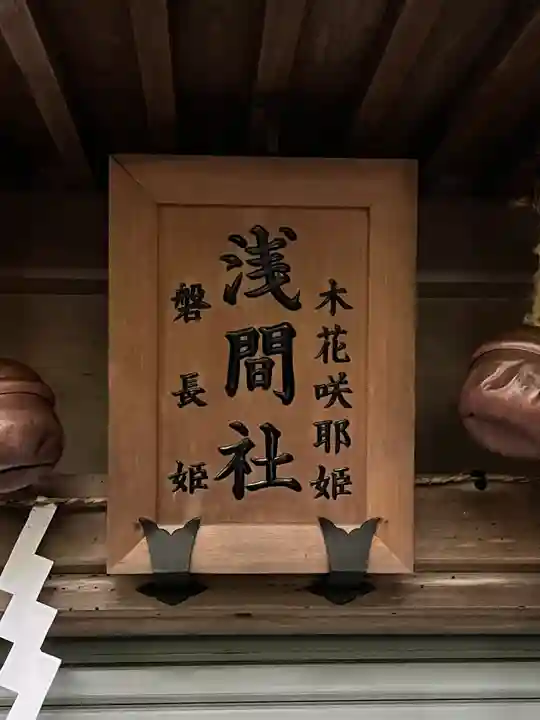 木花咲耶姫
浅間社
磐長姫